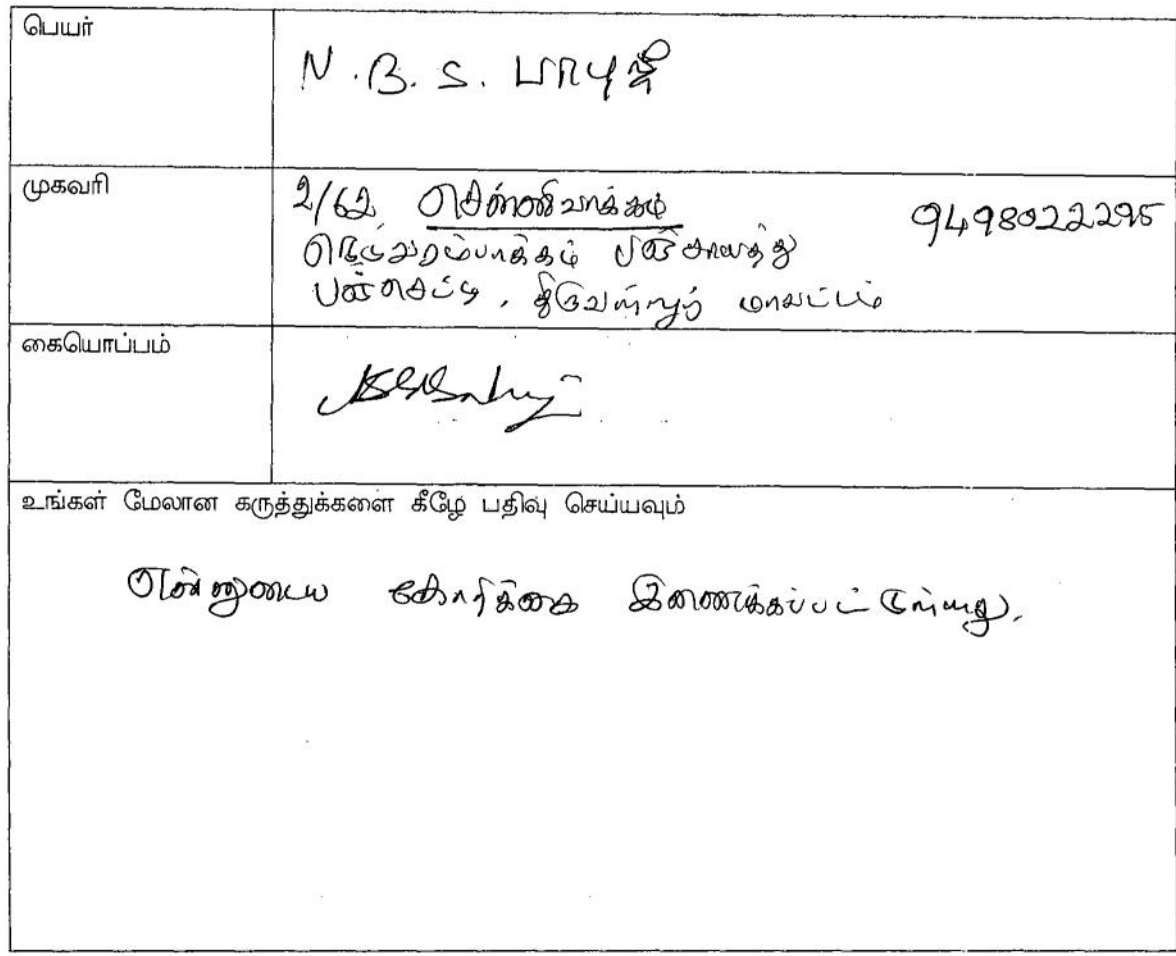 பெயர்
N. B. S. பாபுஜி
முகவரி
2/62 சென்னிவாக்கம் 9498022295
நெடுவரம்பாக்கம் பஞ்சாயத்து
பஞ்செட்டி, திருவள்ளூர் மாவட்டம்
கையொப்பம்
உங்கள் மேலான கருத்துக்களை கீழே பதிவு செய்யவும்
என்னுடைய கோரிக்கை இணைக்கப்பட்டுள்ளது.